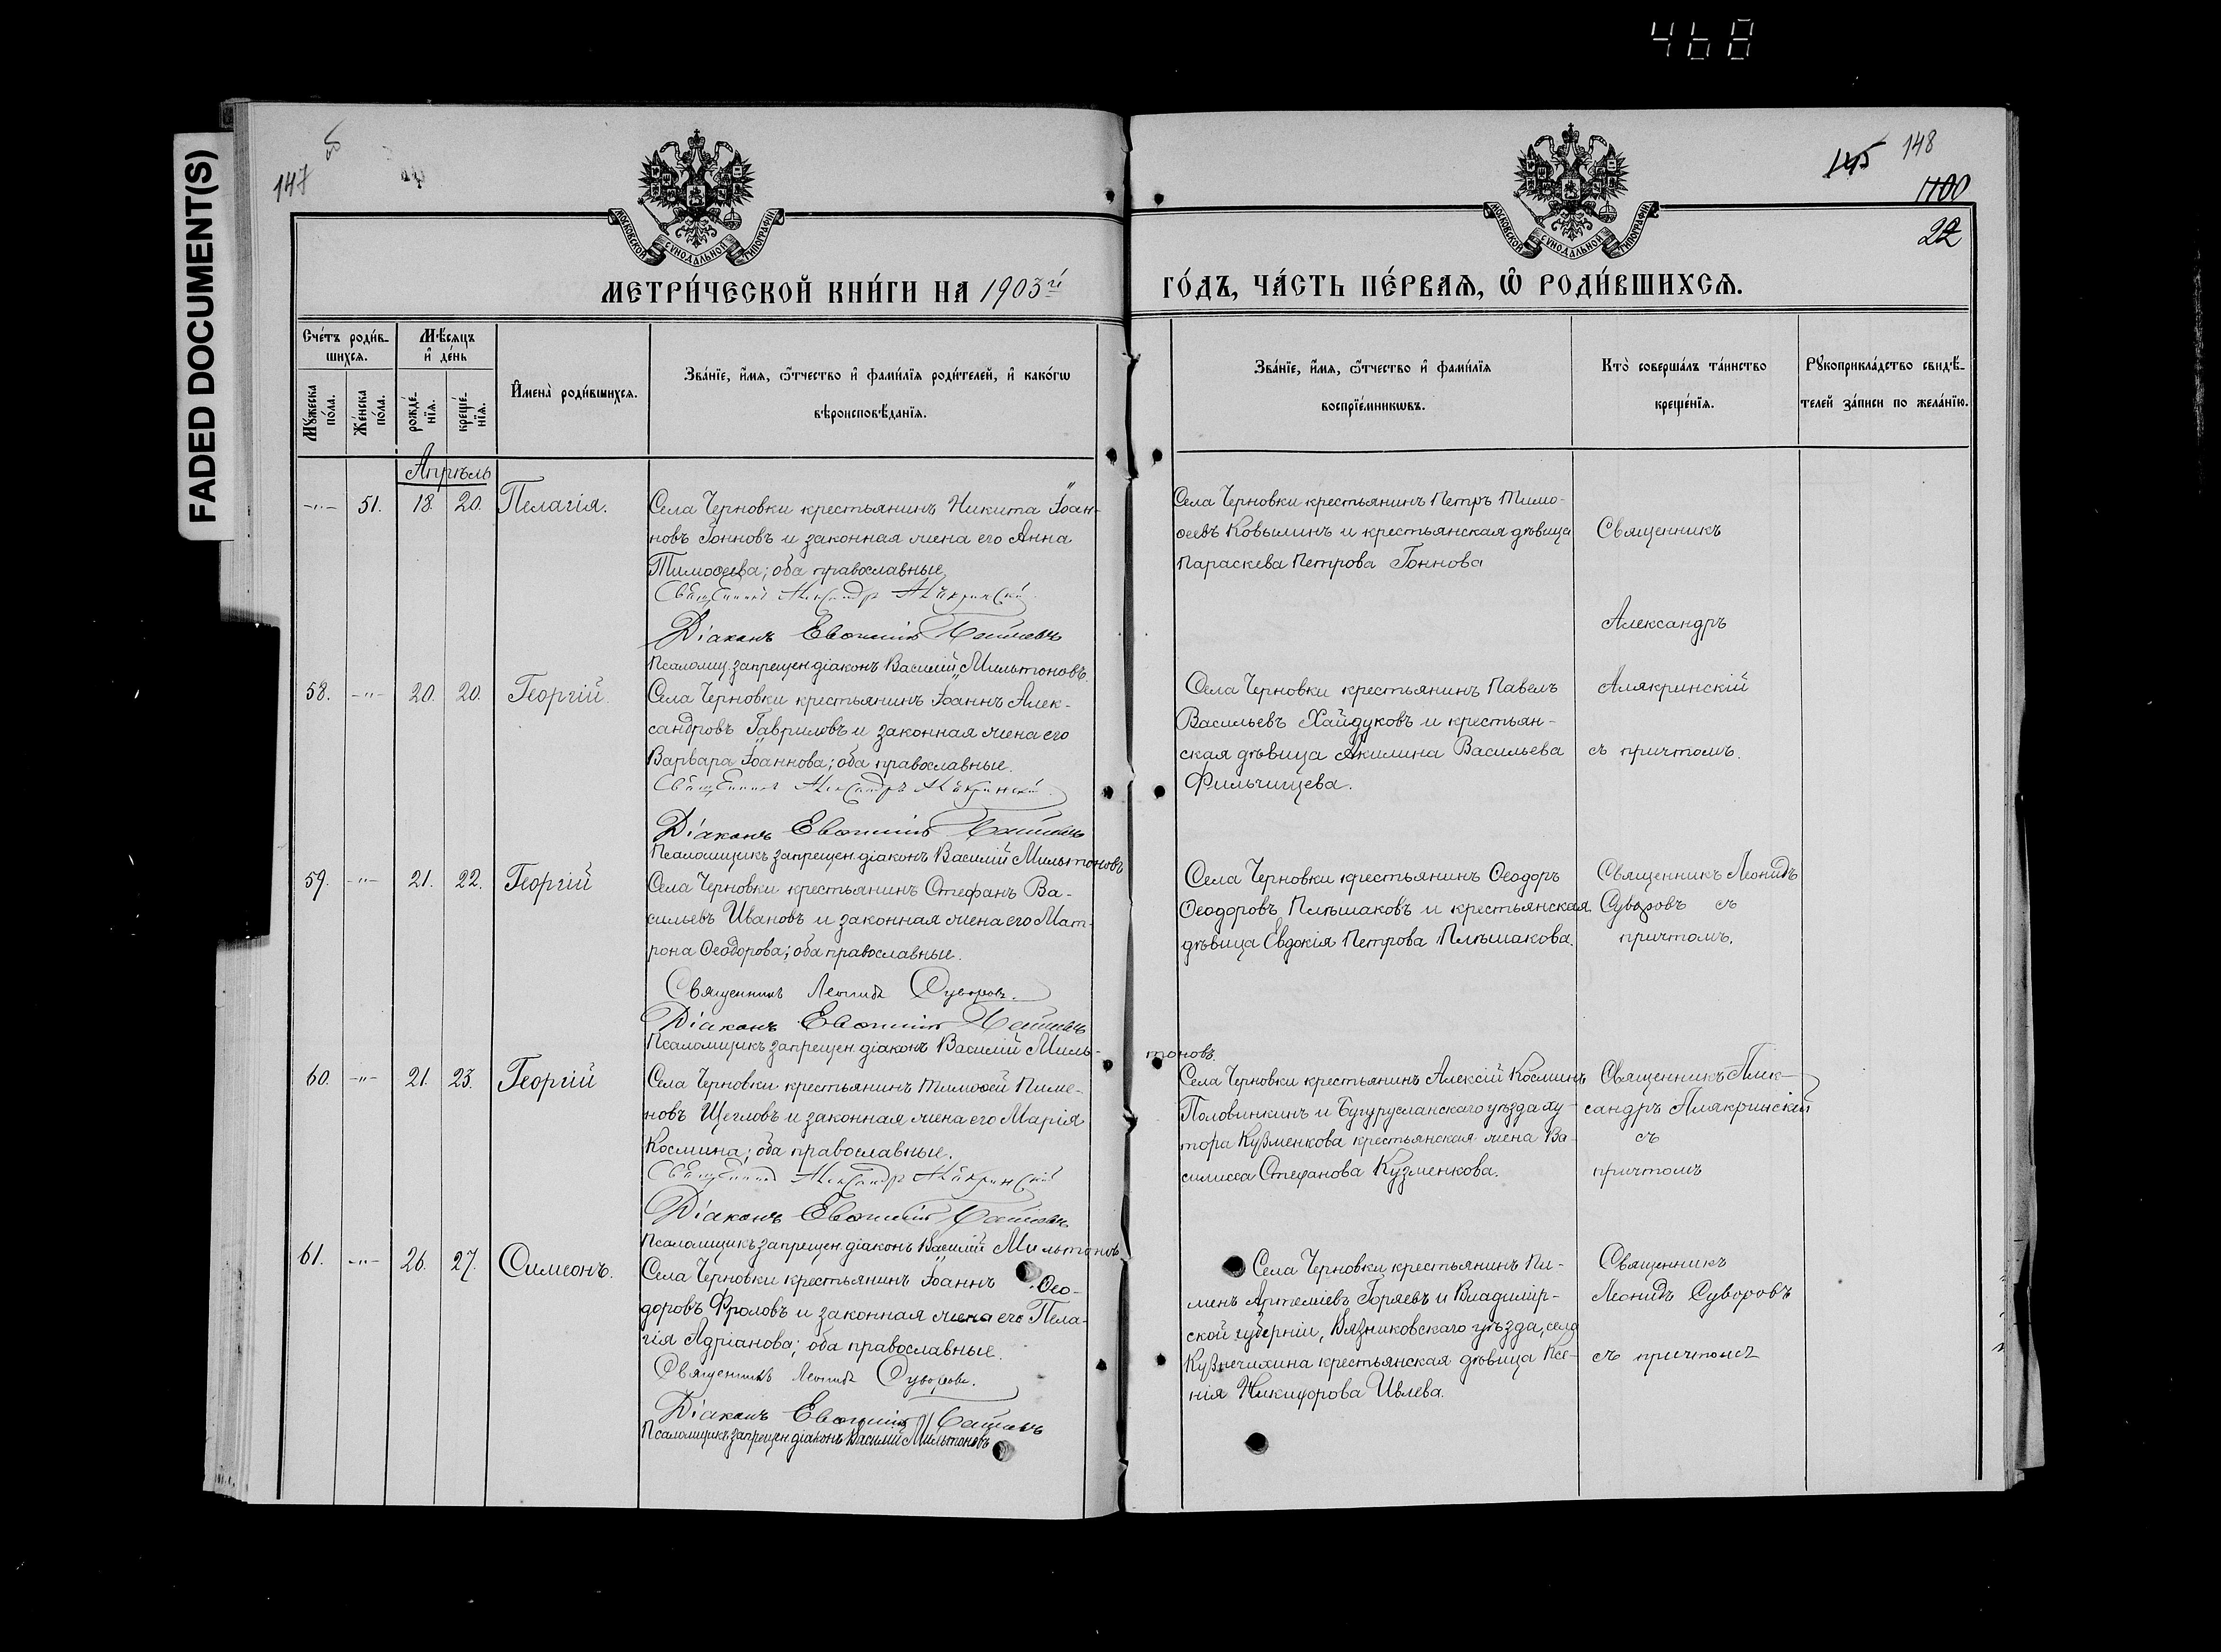 468
FADED DOCUMENT(S)
147
145 148
1100
22
МОСКОВСКОЙ СѴНОДАЛЬНОЙ ТИПОГРАФІИ
МОСКОВСКОЙ СѴНОДАЛЬНОЙ ТИПОГРАФІИ
МЕТРИ́ЧЕСКОЙ КНИ́ГИ НА 1903й
ГО́ДЪ, ЧА́СТЬ ПЕ́РВАѦ, Ѽ РОДИ́ВШИХСѦ.
Сче́тъ роди́в-
шихсѧ.
Мꙋ́жеска
по́ла.
Же́нска
по́ла.
Мѣ́сѧцъ
и҆ де́нь
рожде́-
нїѧ.
креще́-
нїѧ.
И҆мена̀ роди́вшихсѧ.
Зва́нїе, и҆́мѧ, ѻ҆́тчество и҆ фами́лїѧ роди́телей, и҆ како́гѡ
вѣроисповѣ́данїѧ.
Зва́нїе, и҆́мѧ, ѻ҆́тчество и҆ фами́лїѧ
воспрїе́мникѡвъ.
Кто̀ соверша́лъ та́инство
креще́нїѧ.
Рꙋкоприкла́дство свидѣ́-
телей за́писи по жела́нїю.
Апрѣль
-"- 51. 18. 20. Пелагія.
Села Черновки крестьянинъ Никита Іоан-
новъ Гонновъ и законная жена его Анна
Тимоѳеева; оба православные
Священникъ Александръ Алякринскій
Діаконъ Евѳимій
Псаломщ. запрещен. діаконъ Василій Мильтоновъ.
Села Черновки крестьянинъ Петръ Тимо-
ѳеевъ Ковылинъ и крестьянская дѣвица
Параскева Петрова Гоннова
Священникъ
Александръ
Алякринскій
съ причтомъ.
58. -"- 20. 20. Георгій.
Села Черновки крестьянинъ Іоаннъ Алек-
сандровъ Гавриловъ и законная жена его
Варвара Іоаннова; оба православные.
Священникъ Александръ Алякринскій
Діаконъ Евѳимій
Псаломщикъ запрещен. діаконъ Василій Мильтоновъ
Села Черновки крестьянинъ Павелъ
Васильевъ Хайдуковъ и крестьян-
ская дѣвица Акилина Васильева
Фильчищева.
59. -"- 21. 22. Георгій
Села Черновки крестьянинъ Стефанъ Ва-
сильевъ Ивановъ и законная жена его Мат-
рона Ѳеодорова; оба православные.
Священникъ Леонидъ Суворовъ.
Діаконъ Евѳимій
Псаломщикъ запрещен. діаконъ Василій Миль-
тоновъ.
Села Черновки крестьянинъ Ѳеодоръ
Ѳеодоровъ Плѣшаковъ и крестьянская
дѣвица Евдокія Петрова Плѣшакова.
Священникъ Леонидъ
Суворовъ съ
причтомъ.
60. -"- 21. 23. Георгій
Села Черновки крестьянинъ Тимоѳей Пиме-
новъ Щегловъ и законная жена его Марія
Космина; оба православные.
Священникъ Александръ Алякринскій
Діаконъ Евѳимій
Псаломщикъ запрещен. діаконъ Василій Мильтоновъ
Села Черновки крестьянинъ Алексій Косминъ
Половинкинъ и Бугурусланскаго уѣзда ху-
тора Кузменкова крестьянская жена Ва-
силисса Стефанова Кузменкова.
Священникъ Алек-
сандръ Алякринскій
съ
причтомъ
61. -"- 26. 27. Симеонъ.
Села Черновки крестьянинъ Іоаннъ Ѳео-
доровъ Фроловъ и законная жена его Пела-
гія Адріанова; оба православные.
Священникъ Леонидъ Суворовъ.
Діаконъ Евѳимій
Псаломщикъ запрещен. діаконъ Василій Мильтоновъ
Села Черновки крестьянинъ Пи-
менъ Артеміевъ Горяевъ и Владимір-
ской губерніи, Вязниковскаго уѣзда, села
Кузнечихина крестьянская дѣвица Ксе-
нія Никифорова Ивлева.
Священникъ
Леонидъ Суворовъ
съ причтомъ